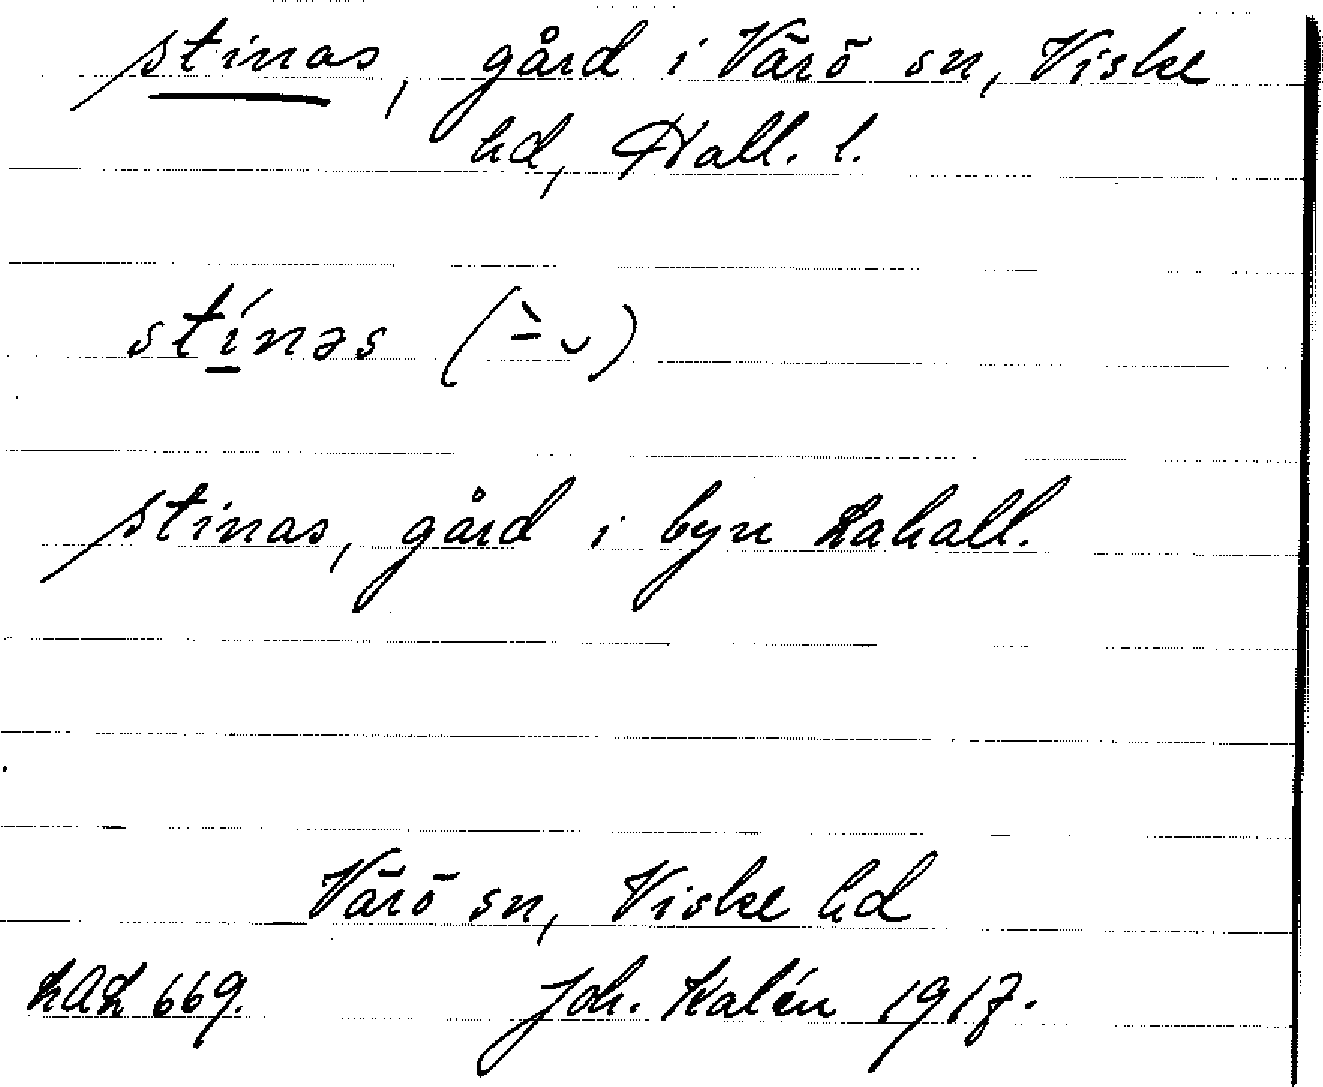 Stinas, gård i Värö sn, Viske
hd, Hall. l.
stínəs (-̀ ᴗ)
Stinas, gård i byn Lahall.
Värö sn, Viske hd
LAL 669. Joh. Kalén 1917.